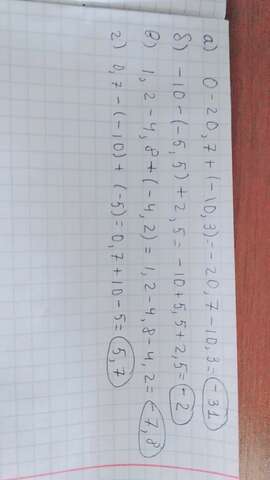 а) 0-20,7+(-10,3)=-20,7-10,3=-31
б) -10-(-5,5)+2,5=-10+5,5+2,5=-2
в) 1,2-4,8+(-4,2)=1,2-4,8-4,2=-7,8
г) 0,7-(-10)+(-5)=0,7+10-5=5,7